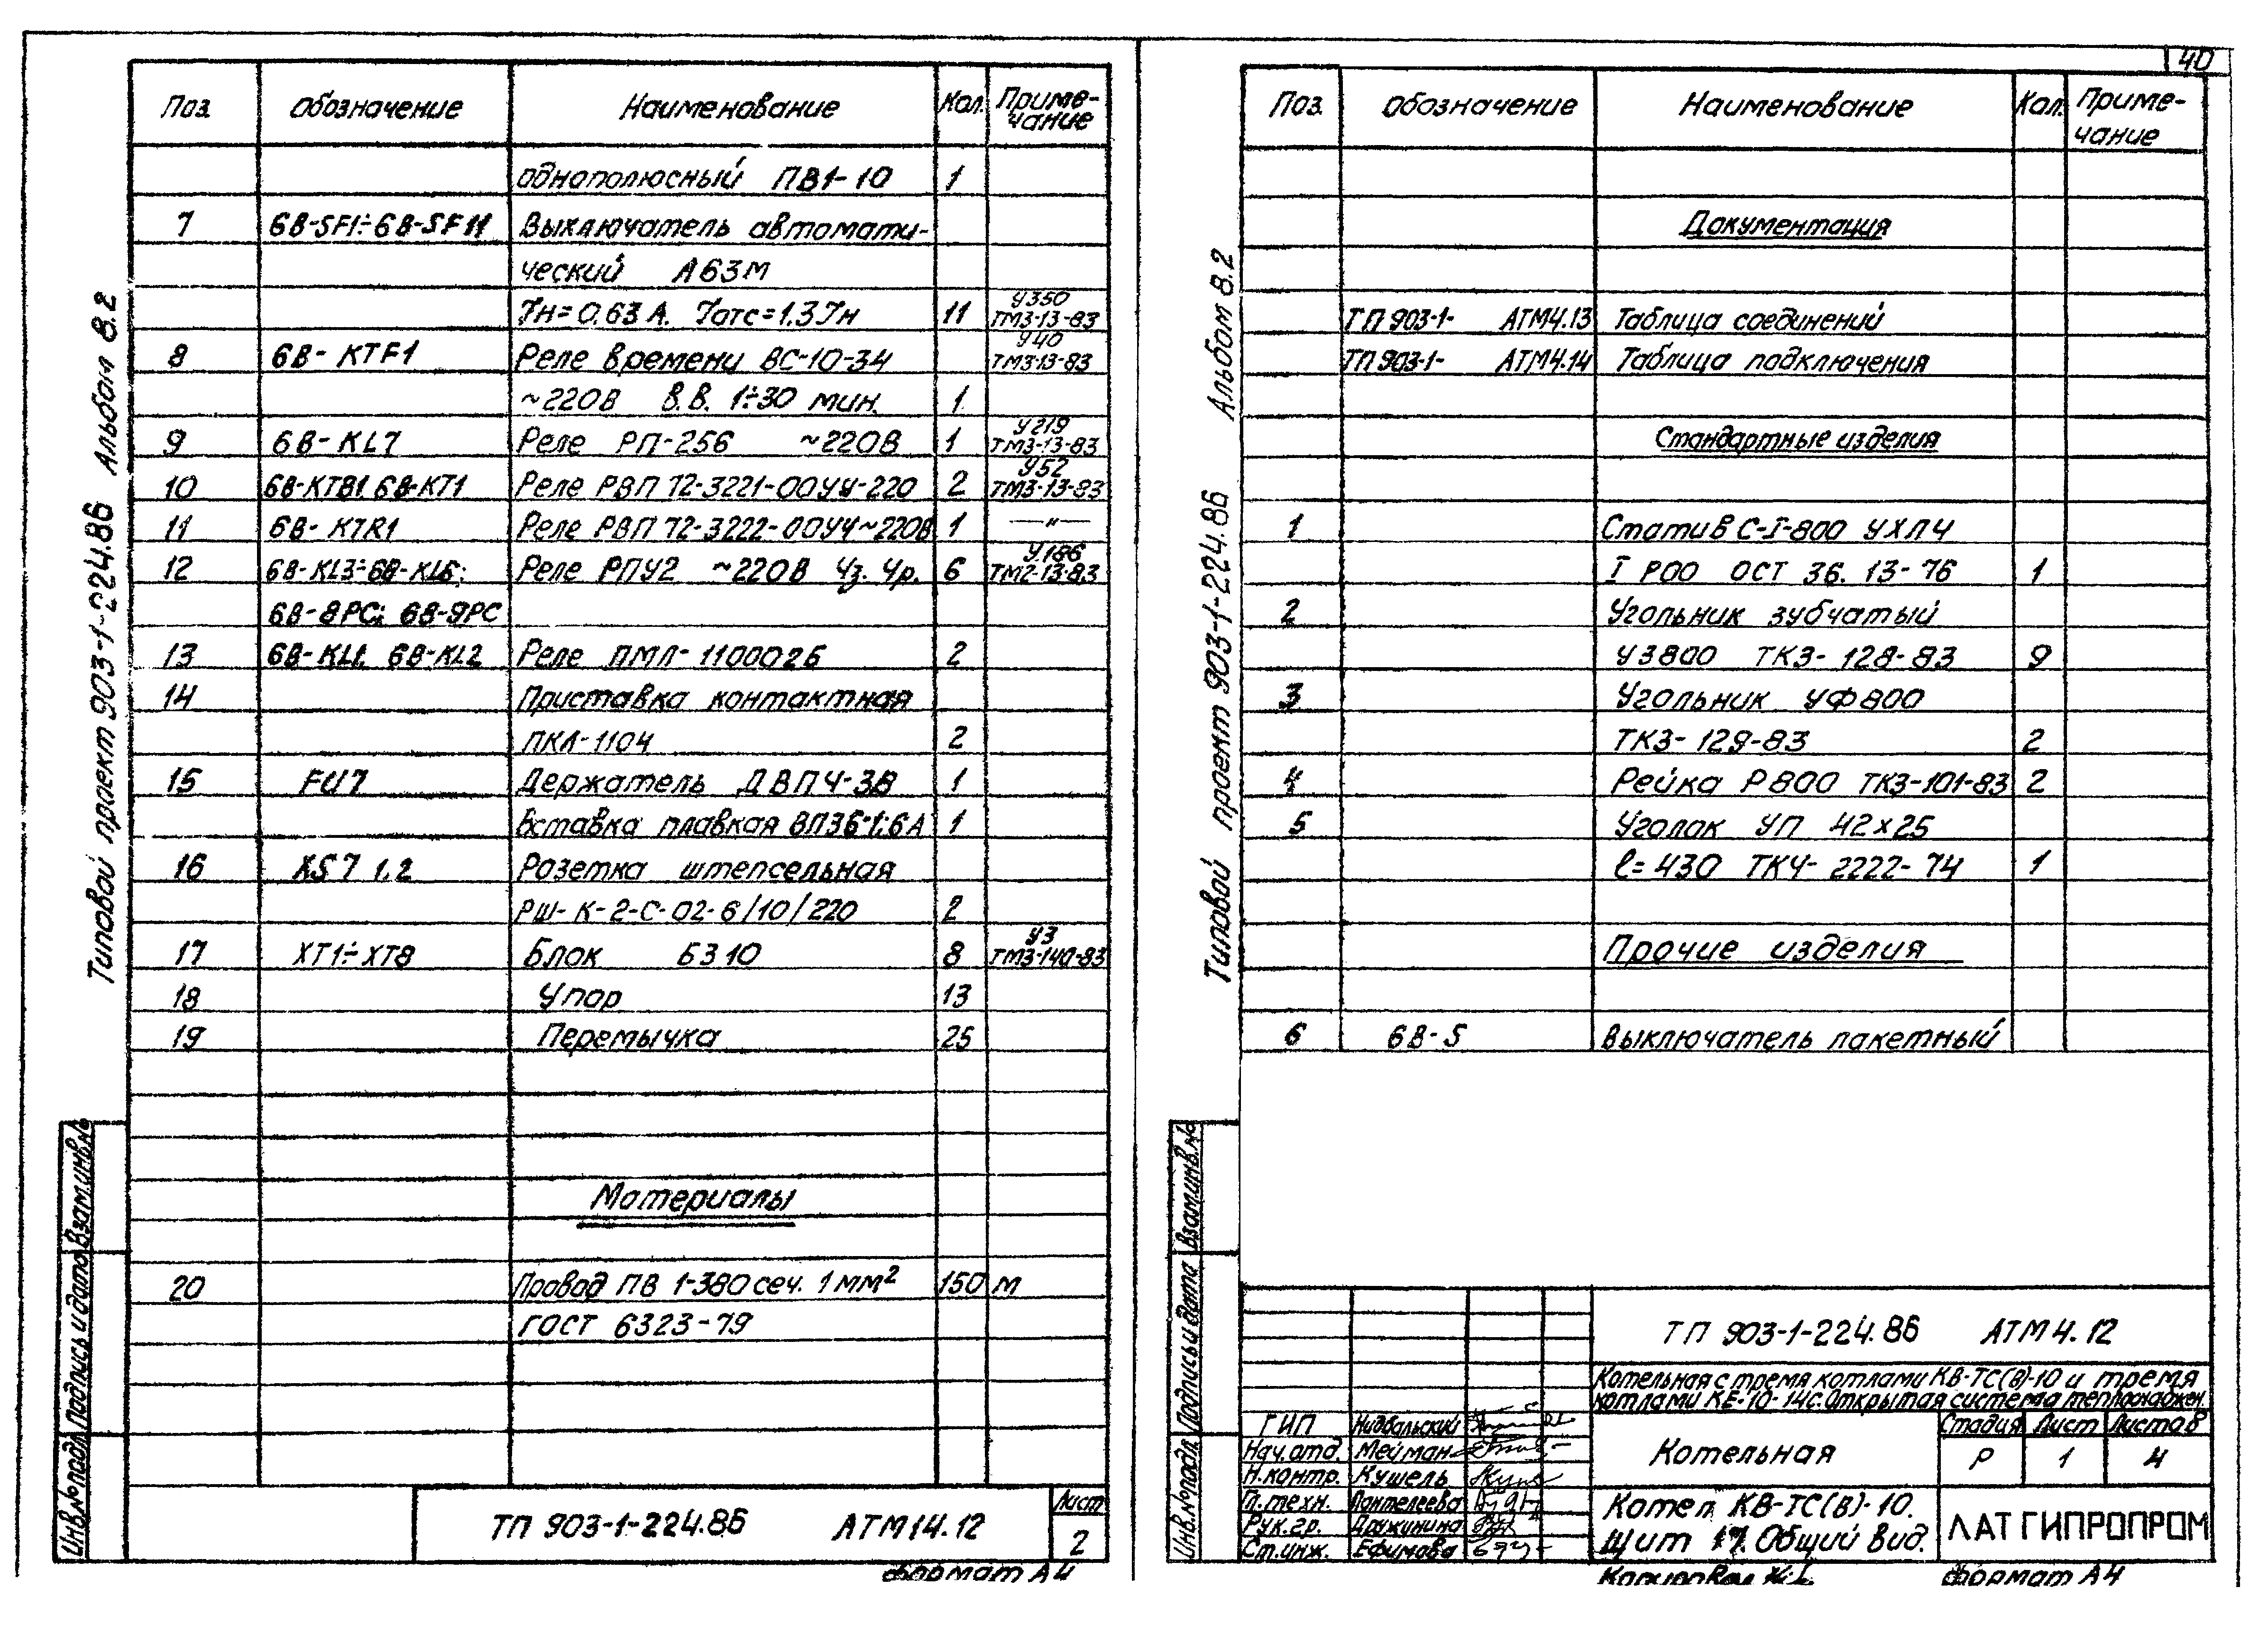 40
Поз. Обозначение Наименование Кол. Приме-
чание
однополюсный ПВ1-10 1
7 6В-SF1÷6В-SF11 Выключатель автомати-
ческий А63М
Iн=0,63А. Iотс=1.3Iн 11 У350 ТМ3-13-83
8 6В-KTF1 Реле времени ВС-10-34 У40 ТМ3-13-83
~220В В.В. 1÷30 мин. 1
9 6В-KL7 Реле РП-256 ~220В 1 У219 ТМ3-13-83
10 6В-KTВ1 6В-KT1 Реле РВП 72-3221-00У4-220 2 У52 ТМ3-13-83
11 6В-KTR1 Реле РВП 72-3222-00У4~220В 1 —"—
12 6В-KL3÷6В-KL6; Реле РПУ2 ~220В 4з. 4р. 6 У186 ТМ2-13-83
6В-8РС; 6В-9РС
13 6В-KL1 6В-KL2 Реле ПМЛ-110002Б 2
14 Приставка контактная
ПКЛ-1104 2
15 FU7 Держатель ДВП4-3В 1
Вставка плавкая ВП3Б-1,6А 1
16 XS7 1.2 Розетка штепсельная
РШ-К-2-С-02-6/10/220 2
17 XT1÷XT8 Блок БЗ10 8 У3 ТМ3-140-83
18 Упор 13
19 Перемычка 25
Материалы
20 Провод ПВ 1-380 сеч. 1мм² 150 м
ГОСТ 6323-79
ТП 903-1-224.86 АТМ14.12
Лист
2
Формат А4
Типовой проект 903-1-224.86 Альбом 8.2
Взам.инв.№
Подпись и дата
Инв.№подл.
Поз. Обозначение Наименование Кол. Приме-
чание
Документация
ТП 903-1- АТМ4.13 Таблица соединений
ТП 903-1- АТМ4.14 Таблица подключения
Стандартные изделия
1 Статив С-I-800 УХЛ4
I Р00 ОСТ 36.13-76 1
2 Угольник зубчатый
УЗ800 ТК3-128-83 9
3 Угольник УФ800
ТК3-129-83 2
4 Рейка Р800 ТК3-101-83 2
5 Уголок УП 42х25
ℓ=430 ТК4-2222-74 1
Прочие изделия
6 6В-S Выключатель пакетный
ТП 903-1-224.86 АТМ4.12
Котельная с тремя котлами КВ-ТС(В)-10 и тремя
котлами КЕ-10-14с. Открытая система теплоснабжен.
ГИП Нидбальский
Нач.отд. Мейман
Н.контр. Кушель
Гл.техн. Пантелеева
Рук.гр. Дружинина
Ст.инж. Ефимова
Котельная
Стадия Лист Листов
Р 1 4
Котел КВ-ТС(В)-10.
Щит 17. Общий вид.
ЛАТГИПРОПРОМ
Копировал
Формат А4
Типовой проект 903-1-224.86 Альбом 8.2
Взам.инв.№
Подпись и дата
Инв.№подл.